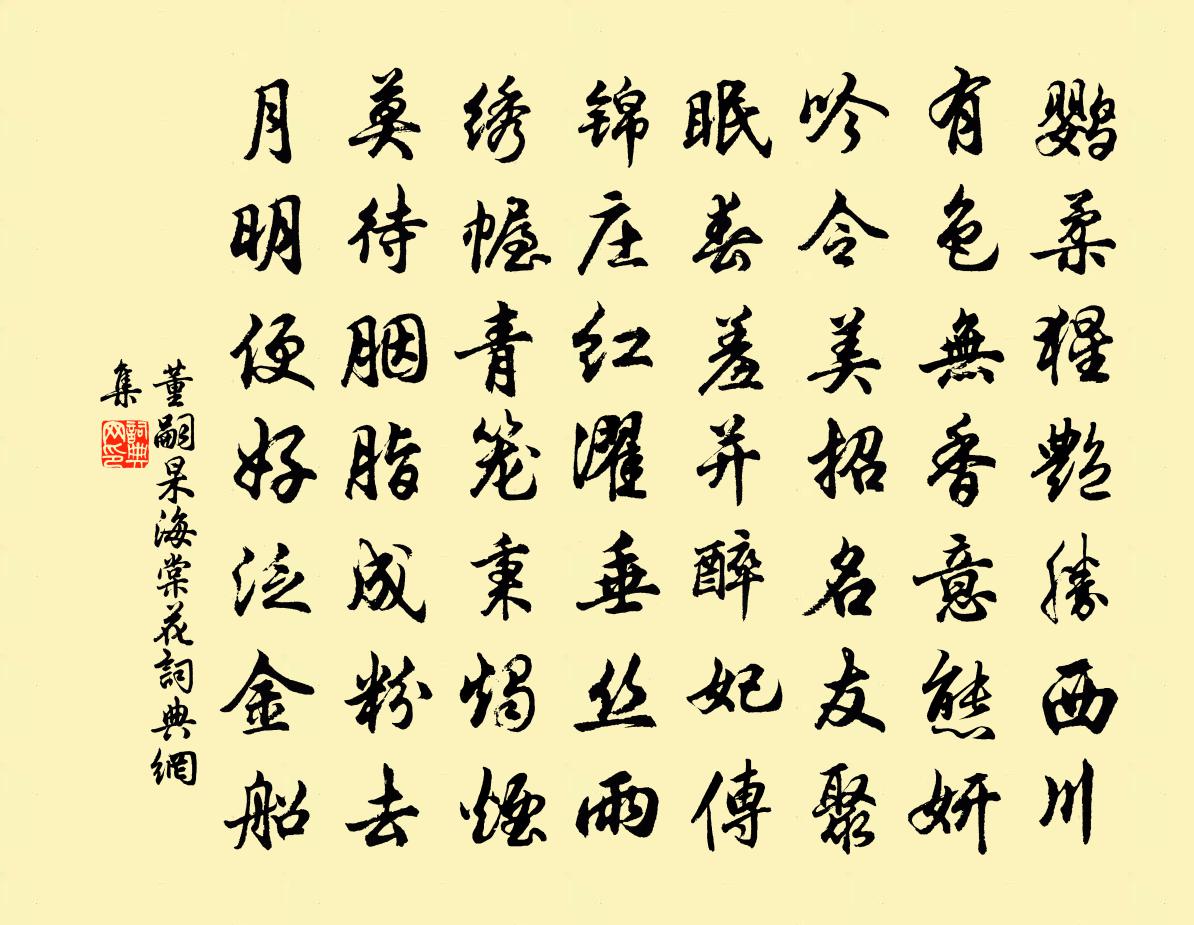 鹦柔猩艷勝西川
有色無香意態妍
吟令美招名友聚
眠春羞并醉妃傳
锦庄红濯垂丝雨
绣幄青笼秉燭煙
莫待胭脂成粉去
月明便好泛金船
董嗣杲海棠花詞典網
集
詞典网印